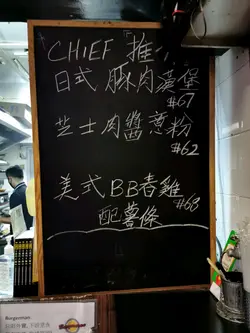 CHIEF 推
日式豚肉漢堡
#67
芝士肉醬意粉
#62
美式BB春雞
#68
配薯條
Burgerman